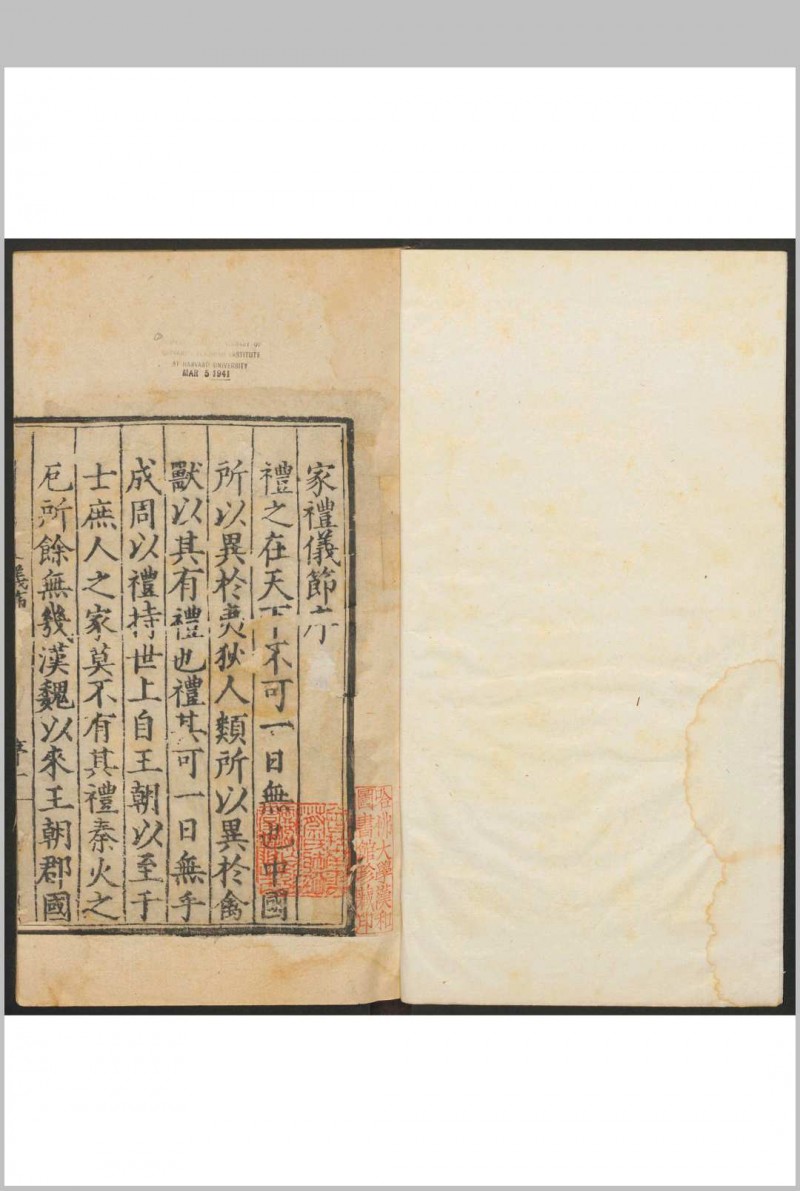 家禮儀節序
禮之在天下不可一日無也中國
所以異於夷狄人類所以異於禽
獸以其有禮也禮其可一日無乎
成周以禮持世上自王朝以至于
士庶人之家莫不有其禮秦火之
厄所餘無幾漢魏以來王朝郡國
INSTITUTE
AT HARVARD UNIVERSITY
MAR 5 1941
哈佛大學漢和
圖書館珍藏印